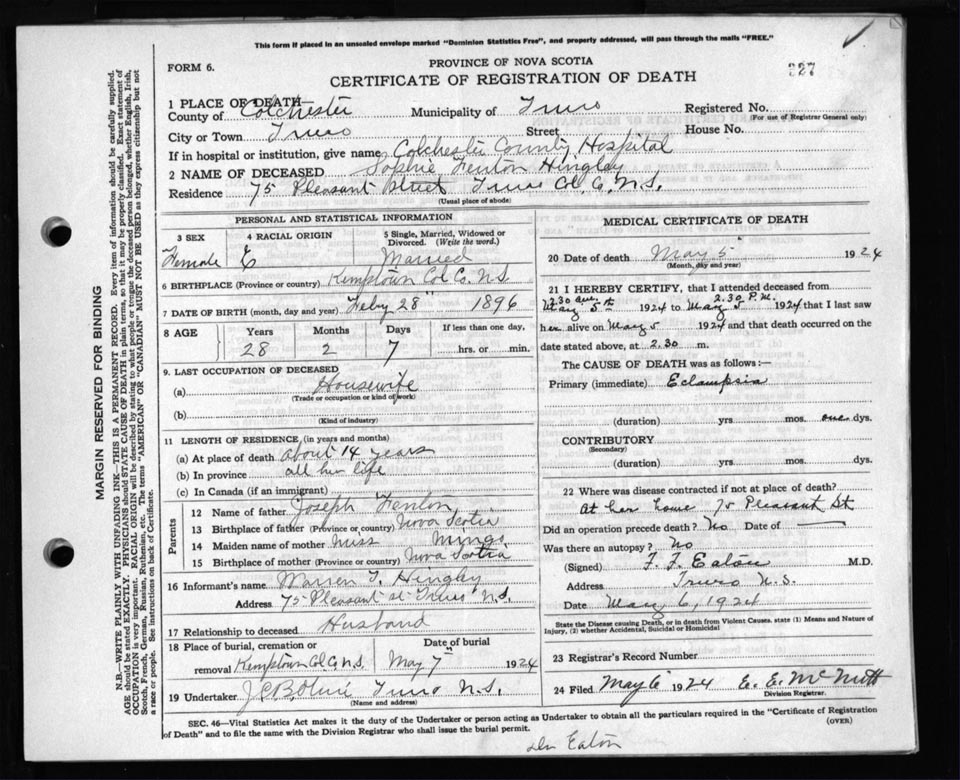 This form if placed in an unsealed envelope marked "Dominion Statistics Free", and properly addressed, will pass through the mails "FREE."
PROVINCE OF NOVA SCOTIA
FORM 6.
CERTIFICATE OF REGISTRATION OF DEATH
327
1 PLACE OF DEATH—
County of Colchester Municipality of Truro Registered No.
(For use of Registrar General only)
City or Town Truro Street House No.
If in hospital or institution, give name Colchester County Hospital
2 NAME OF DECEASED Sophie Fenton Hingley
Residence 75 Pleasant Street Truro Col. Co. N.S.
(Usual place of abode)
PERSONAL AND STATISTICAL INFORMATION
3 SEX 4 RACIAL ORIGIN 5 Single, Married, Widowed or Divorced. (Write the word.)
Female E Married
6 BIRTHPLACE (Province or country) Kemptown Col. Co. N.S
7 DATE OF BIRTH (month, day and year) Feby 28" 1896
8 AGE Years Months Days If less than one day,
28 2 7 hrs. or min.
9. LAST OCCUPATION OF DECEASED
(a) Housewife
(Trade or occupation or kind of work)
(b)
(Kind of industry)
11 LENGTH OF RESIDENCE (in years and months)
(a) At place of death about 14 years
(b) In province all her life
(c) In Canada (if an immigrant)
Parents
12 Name of father Joseph Fenton
13 Birthplace of father (Province or country) Nova Scotia
14 Maiden name of mother Miss Mingo
15 Birthplace of mother (Province or country) Nova Scotia
16 Informant's name Warren T. Hingley
Address 75 Pleasant st Truro N.S.
17 Relationship to deceased Husband
18 Place of burial, cremation or removal Kemptown Col. Co. N.S. Date of burial May 7" 1924
19 Undertaker Truro N.S.
(Name and address)
MEDICAL CERTIFICATE OF DEATH
20 Date of death May 5" 1924
(Month, day and year)
21 I HEREBY CERTIFY, that I attended deceased from
2.30 a.m. 2.30 P.M.
May 5th 1924 to May 5 1924 that I last saw
her alive on May 5 1924 and that death occurred on the
date stated above, at 2.30 m.
The CAUSE OF DEATH was as follows:—
Primary (immediate) Eclampsia
(duration) yrs. mos. one dys.
CONTRIBUTORY
(Secondary)
(duration) yrs. mos. dys.
22 Where was disease contracted if not at place of death?
At her home 75 Pleasant St
Did an operation precede death? No Date of —
Was there an autopsy? No
(Signed) F. F. Eaton M.D.
Address Truro N.S.
Date May 6, 1924
State the Disease causing Death, or in death from Violent Causes, state (1) Means and Nature of Injury, (2) whether Accidental, Suicidal or Homicidal
23 Registrar's Record Number
24 Filed May 6 1924 E. E. McNutt
Division Registrar.
SEC. 46—Vital Statistics Act makes it the duty of the Undertaker or person acting as Undertaker to obtain all the particulars required in the "Certificate of Registration
of Death" and to file the same with the Division Registrar who shall issue the burial permit.
(OVER)
Dr Eaton
MARGIN RESERVED FOR BINDING
N.B.—WRITE PLAINLY WITH UNFADING INK—THIS IS A PERMANENT RECORD. Every item of information should be carefully supplied.
AGE should be stated EXACTLY. PHYSICIANS should STATE CAUSE OF DEATH in plain terms, so that it may be properly classified. Exact statement of
OCCUPATION is very important. RACIAL ORIGIN will be described by stating to what people or tongue the deceased person belonged, whether English, Irish,
Scotch, French, German, Russian, Ruthenian, etc. The terms "AMERICAN" OR "CANADIAN" MUST NOT BE USED as they express citizenship but not
a race or people. See instructions on back of Certificate.